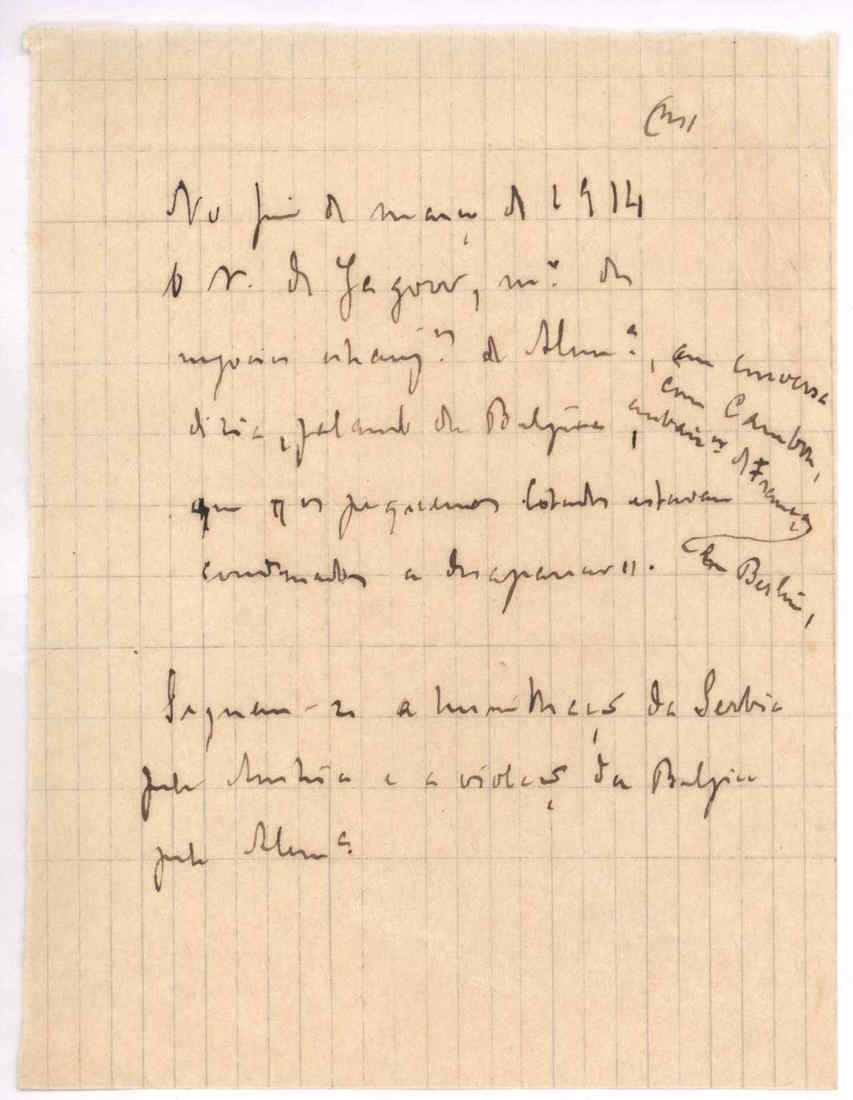 No fim de março de 1914
o V. de Jagow, m.º dos
negocios estrang.ros da Alem.ª, em conversa
com Cambon,
embaix.or da França
em Berlim,
dizia, falando da Belgica,
que os pequenos Estados estavam
condemnados a desaparecer".
Seguem-se a humilhação da Serbia
pela Austria e a violação da Belgica
pela Alem.ª